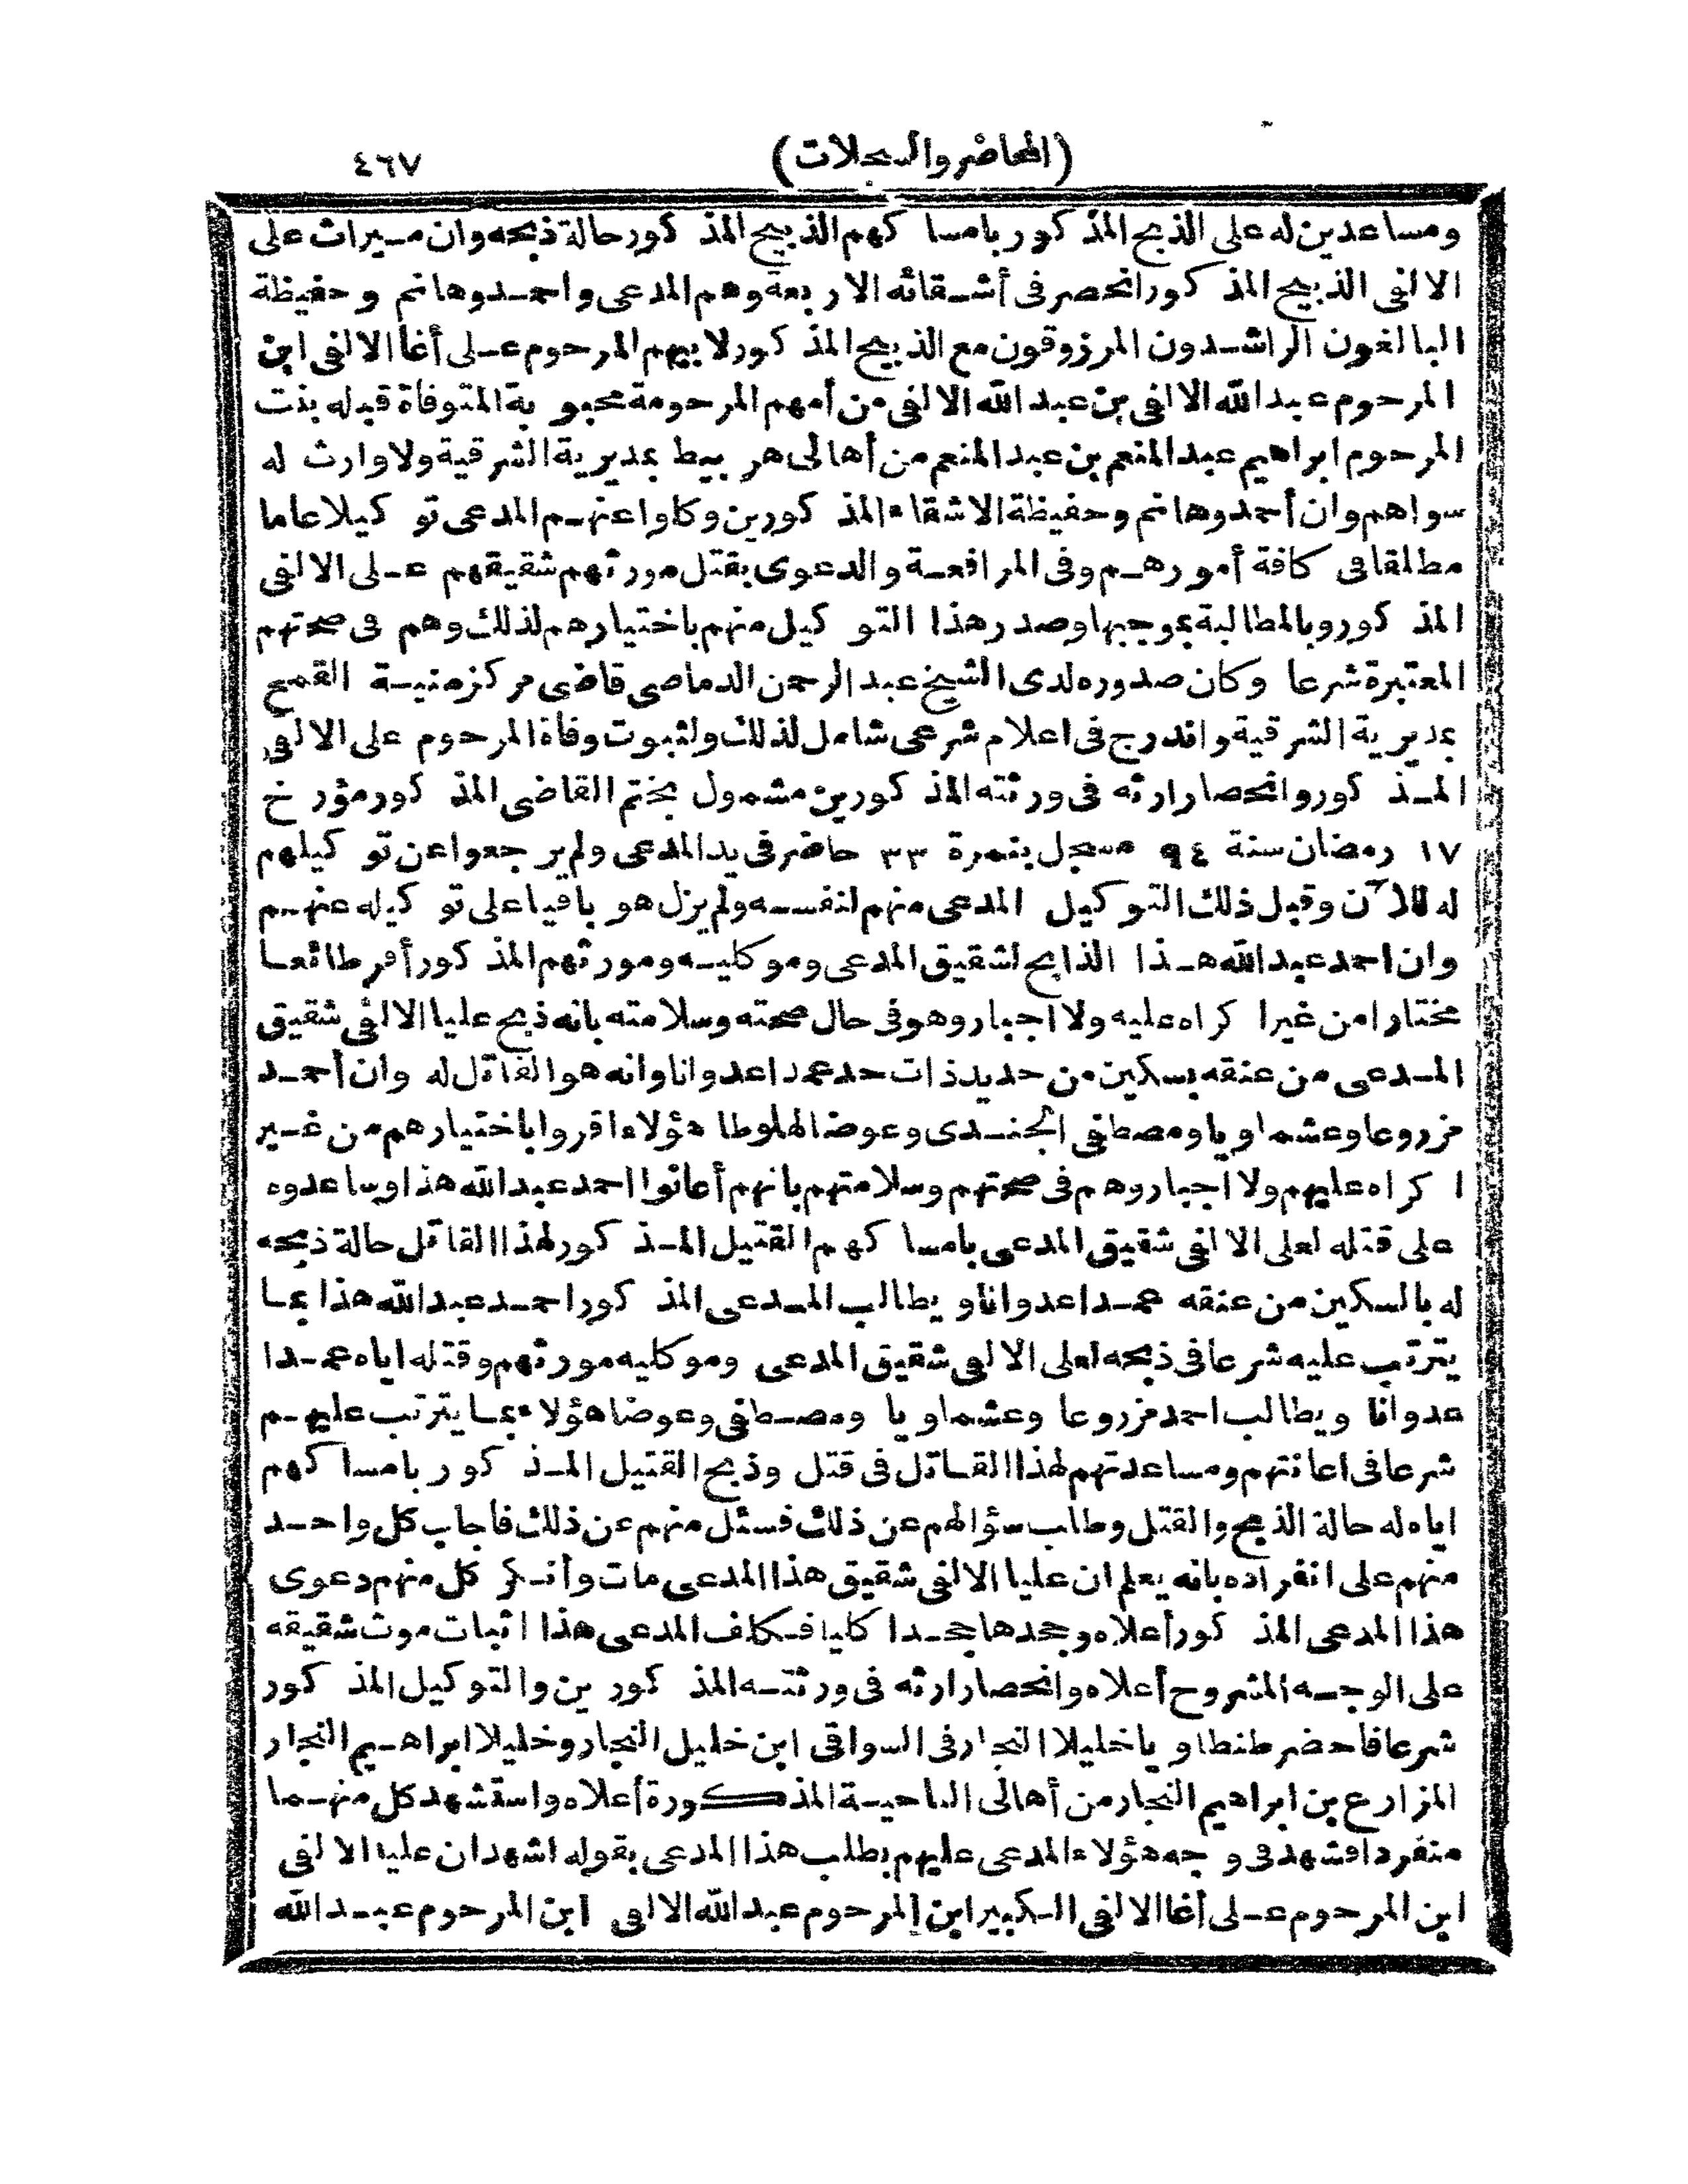 (المحاضر والسجلات) ٤٦٧
ومساعدين له على الذبح المذكور بامساكهم الذبيح المذكور حالة ذبحه وان ميراث على
الالفى الذبيح المذكور انحصر فى أشقائه الاربعة وهم المدعى واحمد وهانم وحفيظة
البالغون الراشدون المرزوقون مع الذبيح المذكور لابيهم المرحوم على أغا الالفى ابن
المرحوم عبد الله الالفى بن عبد الله الالفى من أمهم المرحومة محبوبة المتوفاة قبله بنت
المرحوم ابراهيم عبد المنعم بن عبد المنعم من أهالى هربيط بمديرية الشرقية ولا وارث له
سواهم وان أحمد وهانم وحفيظة الاشقاء المذكورين وكلوا عنهم المدعى توكيلا عاما
مطلقا فى كافة أمورهم وفى المرافعة والدعوى بقتل مورثهم شقيقهم على الالفى
المذكور وبالمطالبة بموجبها وصدر هذا التوكيل منهم باختيارهم لذلك وهم فى صحتهم
المعتبرة شرعا وكان صدوره لدى الشيخ عبد الرحمن الدماصى قاضى مركز منية القمح
بمديرية الشرقية واندرج فى اعلام شرعى شامل لذلك ولثبوت وفاة المرحوم على الالفى
المذكور وانحصار ارثه فى ورثته المذكورين مشمول بختم القاضى المذكور مؤرخ
١٧ رمضان سنة ٩٤ مسجل بنمرة ٣٣ حاضر فى يد المدعى ولم يرجعوا عن توكيلهم
له للآن وقبل ذلك التوكيل المدعى منهم لنفسه ولم يزل هو باقيا على توكيله عنهم
وان احمد عبد الله هذا الذابح لشقيق المدعى وموكليه ومورثهم المذكور أقر طائعا
مختارا من غير اكراه عليه ولا اجبار وهو فى حال صحته وسلامته بانه ذبح عليا الالفى شقيق
المدعى من عنقه بسكين من حديد ذات حد عمدا عدوانا وانه هو القاتل له وان أحمد
مزروعا وعشماويا ومصطفى الجندى وعوضا الهلوطا هؤلاء اقروا باختيارهم من غير
اكراه عليهم ولا اجبار وهم فى صحتهم وسلامتهم بانهم أعانوا احمد عبد الله هذا وساعدوه
على قتله لعلى الالفى شقيق المدعى بامساكهم القتيل المذكور لهذا القاتل حالة ذبحه
له بالسكين من عنقه عمدا عدوانا ويطالب المدعى المذكور احمد عبد الله هذا بما
يترتب عليه شرعا فى ذبحه لعلى الالفى شقيق المدعى وموكليه مورثهم وقتله اياه عمدا
عدوانا ويطالب احمد مزروعا وعشماويا ومصطفى وعوضا هؤلاء بما يترتب عليهم
شرعا فى اعانتهم ومساعدتهم لهذا القاتل فى قتل وذبح القتيل المذكور بامساكهم
اياه له حالة الذبح والقتل وطلب سؤالهم عن ذلك فسئل منهم عن ذلك فاجاب كل واحد
منهم على انفراده بانه يعلم ان عليا الالفى شقيق هذا المدعى مات وأنكر كل منهم دعوى
هذا المدعى المذكور أعلاه وجحدها جحدا كليا فكلف المدعى هذا اثبات موت شقيقه
على الوجه المشروح أعلاه وانحصار ارثه فى ورثته المذكورين والتوكيل المذكور
شرعا فاحضر طنطاويا خليلا النجار فى السواقى ابن خليل النجار وخليلا ابراهيم النجار
المزارع بن ابراهيم النجار من أهالى الناحية المذكورة أعلاه واستشهد كل منهما
منفردا فشهد فى وجه هؤلاء المدعى عليهم بطلب هذا المدعى بقوله اشهد ان عليا الالفى
ابن المرحوم على أغا الالفى الكبير ابن المرحوم عبد الله الالفى ابن المرحوم عبد الله